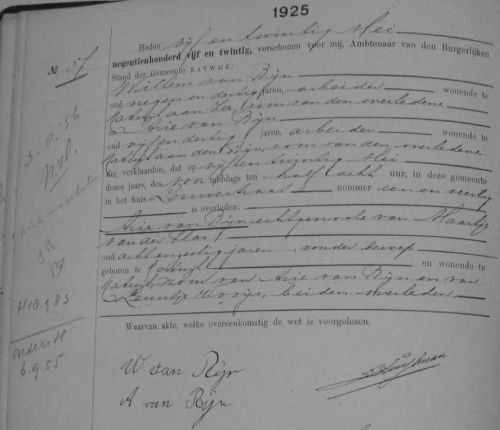 1925
No 57
Heden vijf en twintig Mei
negentienhonderd vijf en twintig, verschenen voor mij, Ambtenaar van den Burgerlijken
Stand der Gemeente KATWIJK:
Willem van Rijn
oud negen en dertig jaren, arbeider wonende te
Katwijk aan Zee, zoon van den overledene
en Arie van Rijn
oud vijf en dertig jaren, arbeider wonende te
Katwijk aan den Rijn, zoon van den overledene
die verklaarden, dat op vijf en twintig Mei
dezes jaars, des voormiddags ten half acht ure, in deze gemeente
in het huis nummer een en veertig
is overleden:
Arie van Rijn echtgenoote van Maartje
van der Plas
oud acht en zestig jaren, zonder beroep
geboren te Katwijk en wonende te
Katwijk, zoon van Arie van Rijn en van
Leuntje beiden overleden
Waarvan akte, welke overeenkomstig de wet is voorgelezen.
W van Rijn
A van Rijn
3.8.56
H10983
6955